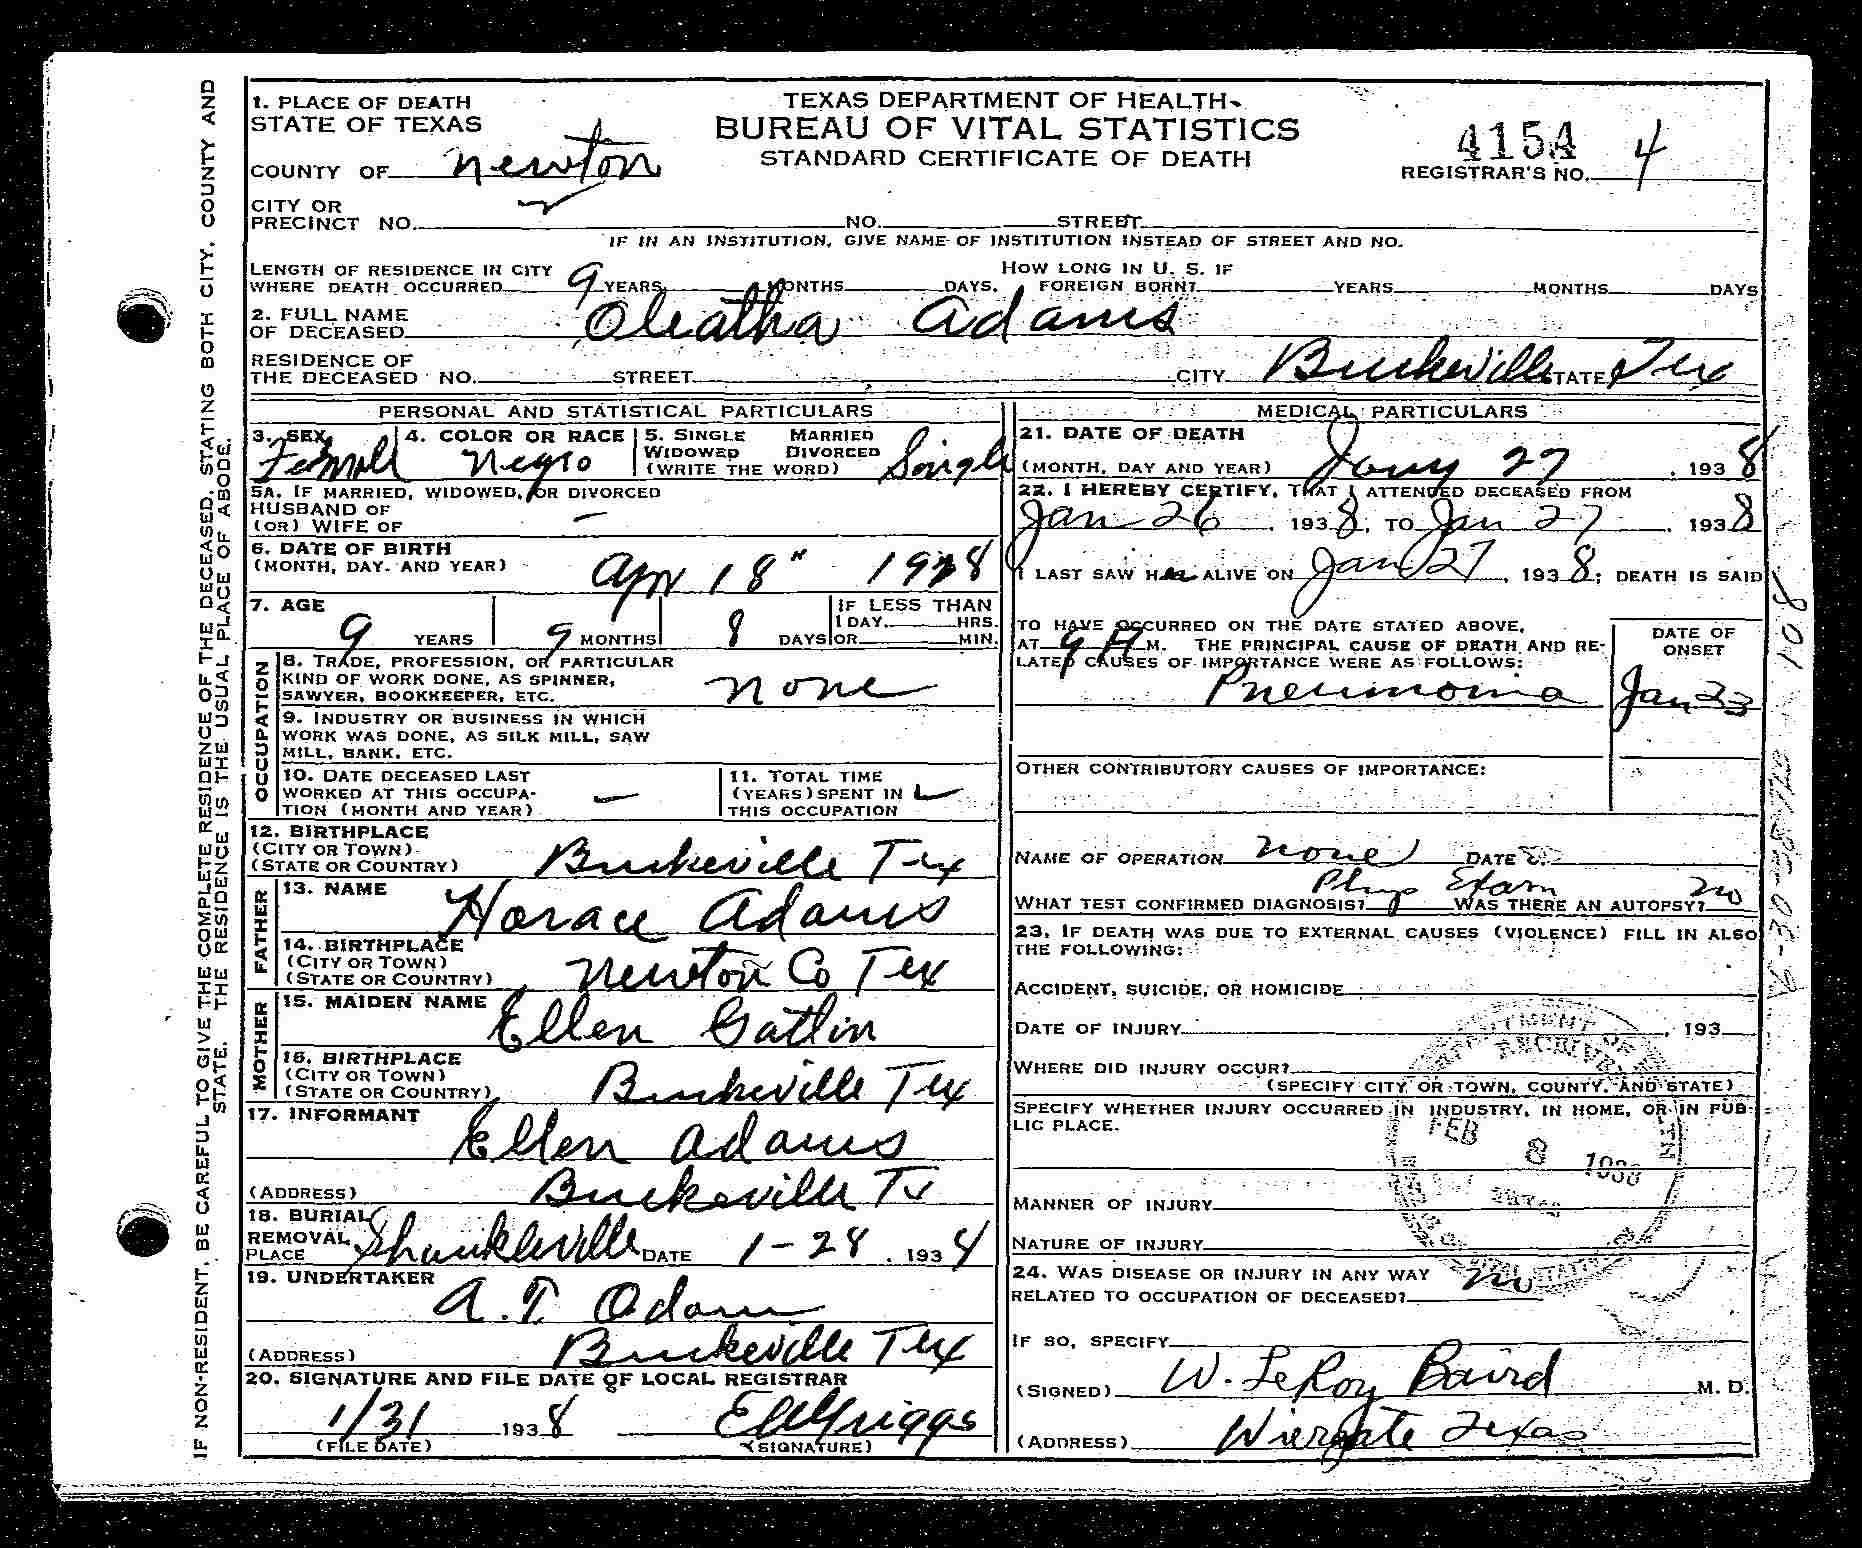 1. PLACE OF DEATH
STATE OF TEXAS
COUNTY OF Newton
TEXAS DEPARTMENT OF HEALTH
BUREAU OF VITAL STATISTICS
STANDARD CERTIFICATE OF DEATH
4154
REGISTRAR'S NO. 4
CITY OR
PRECINCT NO. NO. STREET
IF IN AN INSTITUTION, GIVE NAME OF INSTITUTION INSTEAD OF STREET AND NO.
LENGTH OF RESIDENCE IN CITY
WHERE DEATH OCCURRED 9 YEARS MONTHS DAYS. HOW LONG IN U. S. IF FOREIGN BORN? YEARS MONTHS DAYS
2. FULL NAME
OF DECEASED Oleatha Adams
RESIDENCE OF
THE DECEASED NO. STREET CITY Burkeville STATE Tex
PERSONAL AND STATISTICAL PARTICULARS
3. SEX Femall
4. COLOR OR RACE Negro
5. SINGLE MARRIED
WIDOWED DIVORCED
(WRITE THE WORD) Single
5A. IF MARRIED, WIDOWED, OR DIVORCED
HUSBAND OF
(OR) WIFE OF –
6. DATE OF BIRTH
(MONTH, DAY, AND YEAR) Apr 18" 1928
7. AGE
9 YEARS 9 MONTHS 8 DAYS
IF LESS THAN
1 DAY HRS.
OR MIN.
OCCUPATION
8. TRADE, PROFESSION, OR PARTICULAR
KIND OF WORK DONE, AS SPINNER,
SAWYER, BOOKKEEPER, ETC. None
9. INDUSTRY OR BUSINESS IN WHICH
WORK WAS DONE, AS SILK MILL, SAW
MILL, BANK, ETC.
10. DATE DECEASED LAST
WORKED AT THIS OCCUPA-
TION (MONTH AND YEAR) –
11. TOTAL TIME
(YEARS) SPENT IN
THIS OCCUPATION
12. BIRTHPLACE
(CITY OR TOWN)
(STATE OR COUNTRY) Burkeville Tex
FATHER
13. NAME Horace Adams
14. BIRTHPLACE
(CITY OR TOWN)
(STATE OR COUNTRY) Newton Co Tex
MOTHER
15. MAIDEN NAME Ellen Gatlin
16. BIRTHPLACE
(CITY OR TOWN)
(STATE OR COUNTRY) Burkeville Tex
17. INFORMANT Ellen Adams
(ADDRESS) Burkeville Tx
18. BURIAL
REMOVAL
PLACE Shankleville DATE 1-28, 1934
19. UNDERTAKER A.T. Odom
(ADDRESS) Burkeville Tex
20. SIGNATURE AND FILE DATE OF LOCAL REGISTRAR
1/31 1938 Griggs
(FILE DATE) (SIGNATURE)
MEDICAL PARTICULARS
21. DATE OF DEATH
(MONTH, DAY AND YEAR) Jany 27, 1938
22. I HEREBY CERTIFY, THAT I ATTENDED DECEASED FROM
Jan 26, 1938, TO Jan 27, 1938
I LAST SAW Her ALIVE ON Jan 27, 1938; DEATH IS SAID
TO HAVE OCCURRED ON THE DATE STATED ABOVE,
AT 9 A M. THE PRINCIPAL CAUSE OF DEATH AND RE-
LATED CAUSES OF IMPORTANCE WERE AS FOLLOWS:
DATE OF
ONSET
Pneumonia Jan 23
OTHER CONTRIBUTORY CAUSES OF IMPORTANCE:
NAME OF OPERATION None DATE
WHAT TEST CONFIRMED DIAGNOSIS? Phys Exam WAS THERE AN AUTOPSY? no
23. IF DEATH WAS DUE TO EXTERNAL CAUSES (VIOLENCE) FILL IN ALSO
THE FOLLOWING:
ACCIDENT, SUICIDE, OR HOMICIDE
DATE OF INJURY , 193
WHERE DID INJURY OCCUR?
(SPECIFY CITY OR TOWN, COUNTY, AND STATE)
SPECIFY WHETHER INJURY OCCURRED IN INDUSTRY, IN HOME, OR IN PUB-
LIC PLACE.
FEB 8 1938
MANNER OF INJURY
NATURE OF INJURY
24. WAS DISEASE OR INJURY IN ANY WAY
RELATED TO OCCUPATION OF DECEASED? no
IF SO, SPECIFY
(SIGNED) W. LeRoy Baird M. D.
(ADDRESS) Wiergate Texas
IF NON-RESIDENT, BE CAREFUL TO GIVE THE COMPLETE RESIDENCE OF THE DECEASED, STATING BOTH CITY, COUNTY AND
STATE. THE RESIDENCE IS THE USUAL PLACE OF ABODE.
108